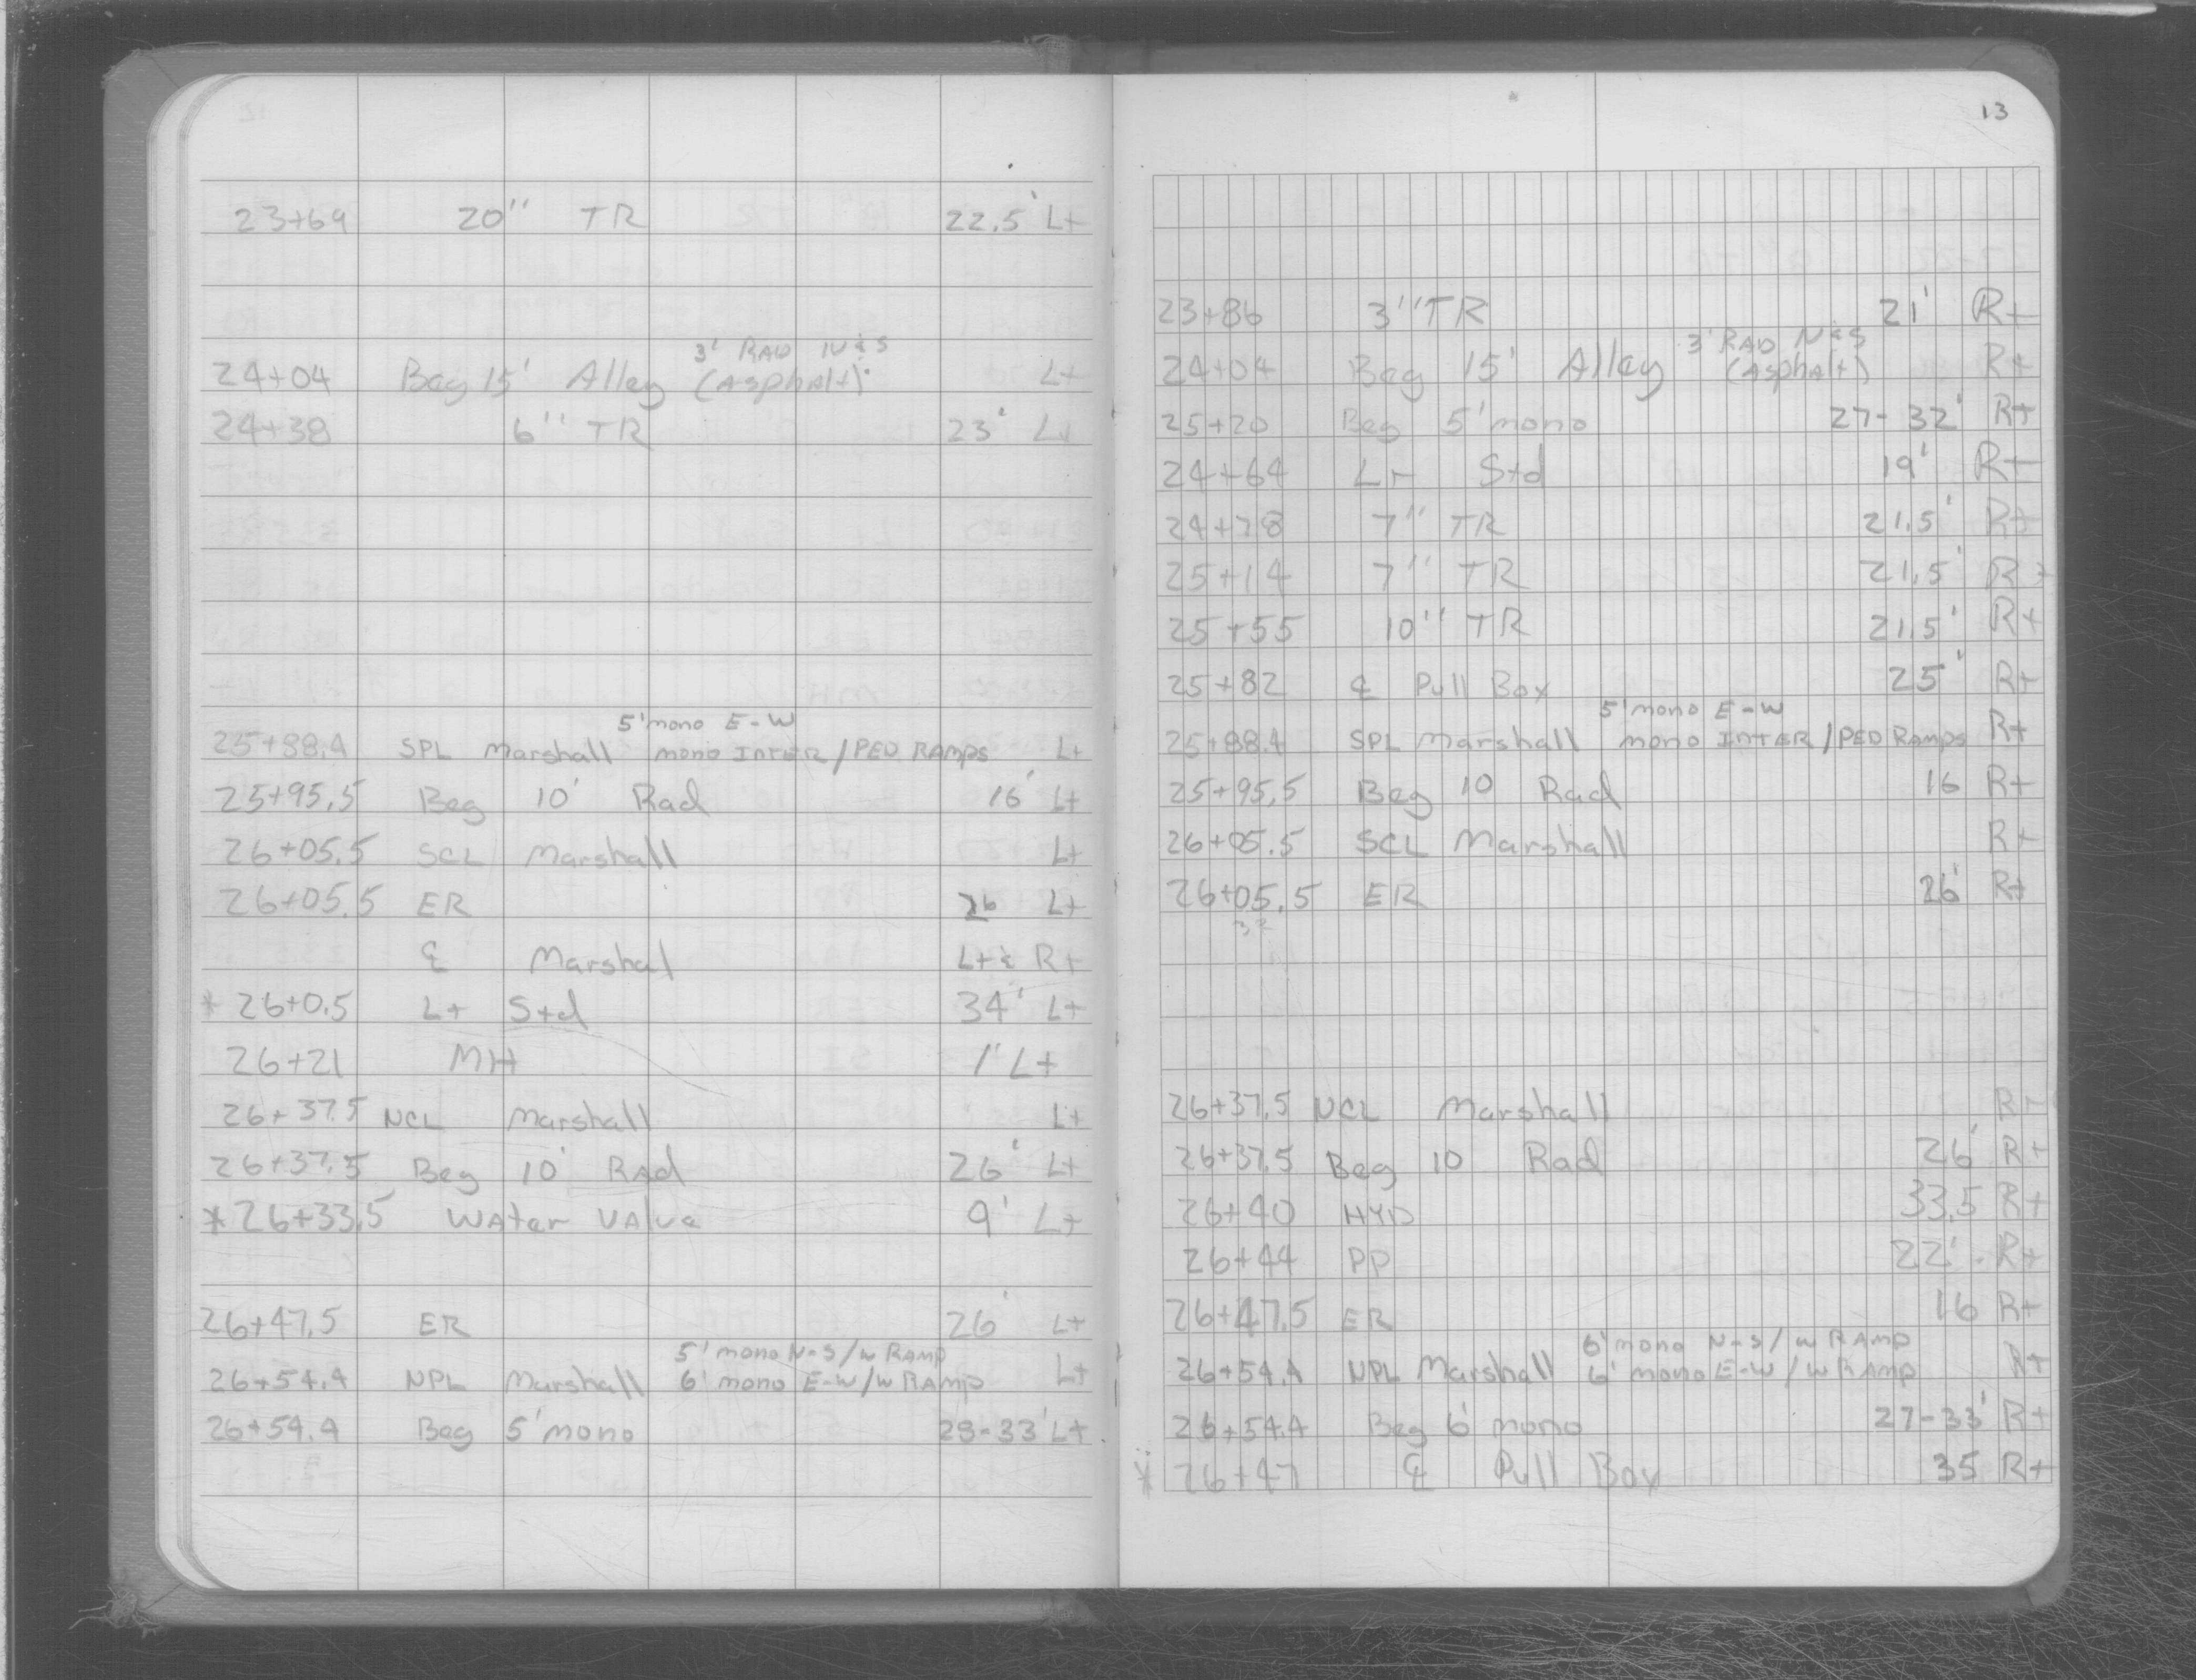 23+69 20'' TR 22.5' Lt
3' RAD N&S
24+04 Beg 15' Alley (Asphalt) Lt
24+38 6'' TR 23' Lt
5' mono E-W
25+88.4 SPL Marshall mono INTER/PED RAMPS Lt
25+95.5 Beg 10' Rad 16' Lt
26+05.5 SCL Marshall Lt
26+05.5 ER 26 Lt
℄ Marshal Lt & Rt
* 26+0.5 Lt Std 34' Lt
26+21 MH 1' Lt
26+37.5 NCL Marshall Lt
26+37.5 Beg 10' RAd 26' Lt
* 26+33.5 WAter VAlve 9' Lt
26+47.5 ER 26' Lt
5' mono N-S/W RAMP
26+54.4 NPL Marshall 6' mono E-W/W RAMP Lt
26+54.4 Beg 5' mono 28-33' Lt
13
23+86 3'' TR 21' Rt
3' RAD N&S
24+04 Beg 15' Alley (Asphalt) Rt
25+20 Beg 5' mono 27-32' Rt
24+64 Lt Std 19' Rt
24+78 7'' TR 21.5' Rt
25+14 7'' TR 21.5' Rt
25+55 10'' TR 21.5' Rt
25+82 ℄ Pull Box 25' Rt
5' mono E-W
25+88.4 SPL Marshall mono INTER/PED RAMPS Rt
25+95.5 Beg 10 Rad 16 Rt
26+05.5 SCL Marshall Rt
26+05.5 ER 26' Rt
26+37.5 NCL Marshall Rt
26+37.5 Beg 10 Rad 26' Rt
26+40 HYD 33.5 Rt
26+44 PP 22' Rt
26+47.5 ER 16 Rt
6' mono N-S/W RAMP
26+54.4 NPL Marshall 6' mono E-W/W RAMP Rt
26+54.4 Beg 6' mono 27-33' Rt
* 26+47 ℄ Pull Box 35 Rt